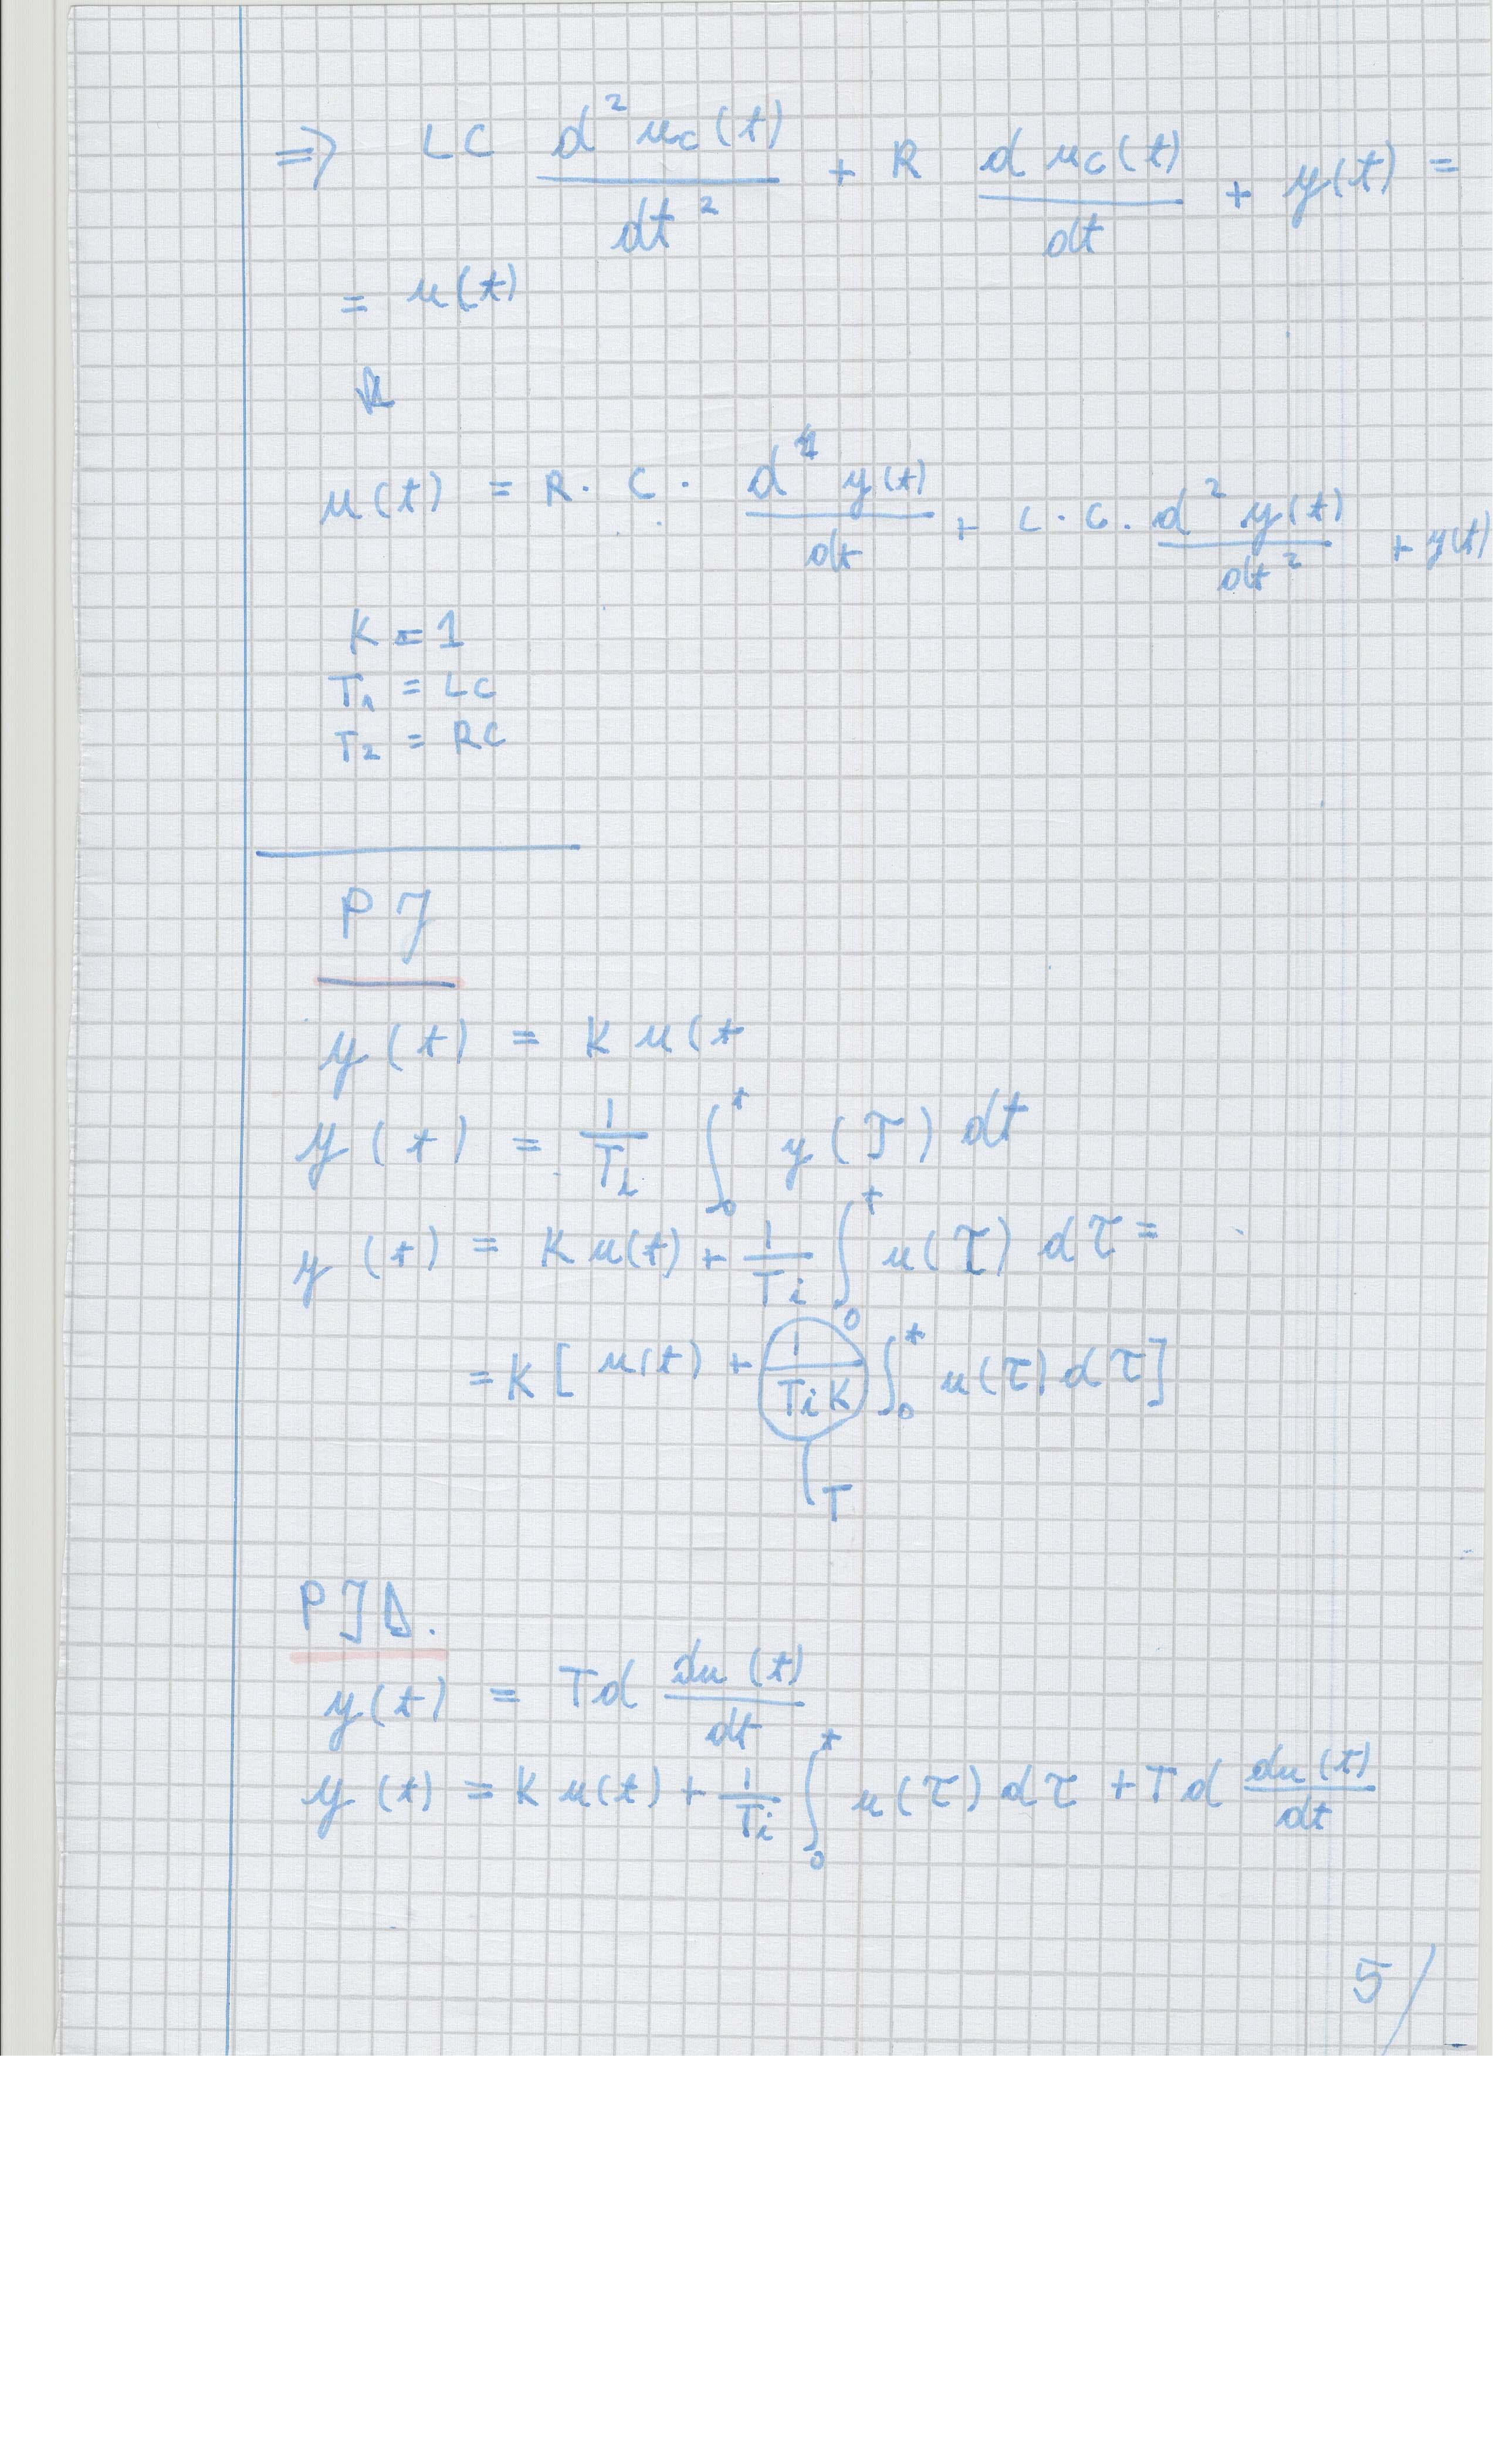 => LC d²u_c(t)/dt² + R du_c(t)/dt + y(t) =
= u(t)
u(t) = R · C · d¹y(t)/dt + L · C · d²y(t)/dt² + y(t)
K = 1
T₁ = LC
T₂ = RC
PJ
y(t) = K u(t
y(t) = 1/T_i ∫₀ᵗ y(T) dt
y(t) = K u(t) + 1/T_i ∫₀ᵗ u(τ) dτ =
= K [ u(t) + 1/(T_i K) ∫₀ᵗ u(τ) dτ ]
T
PJD.
y(t) = Td du(t)/dt
y(t) = K u(t) + 1/T_i ∫₀ᵗ u(τ) dτ + Td du(t)/dt
5/